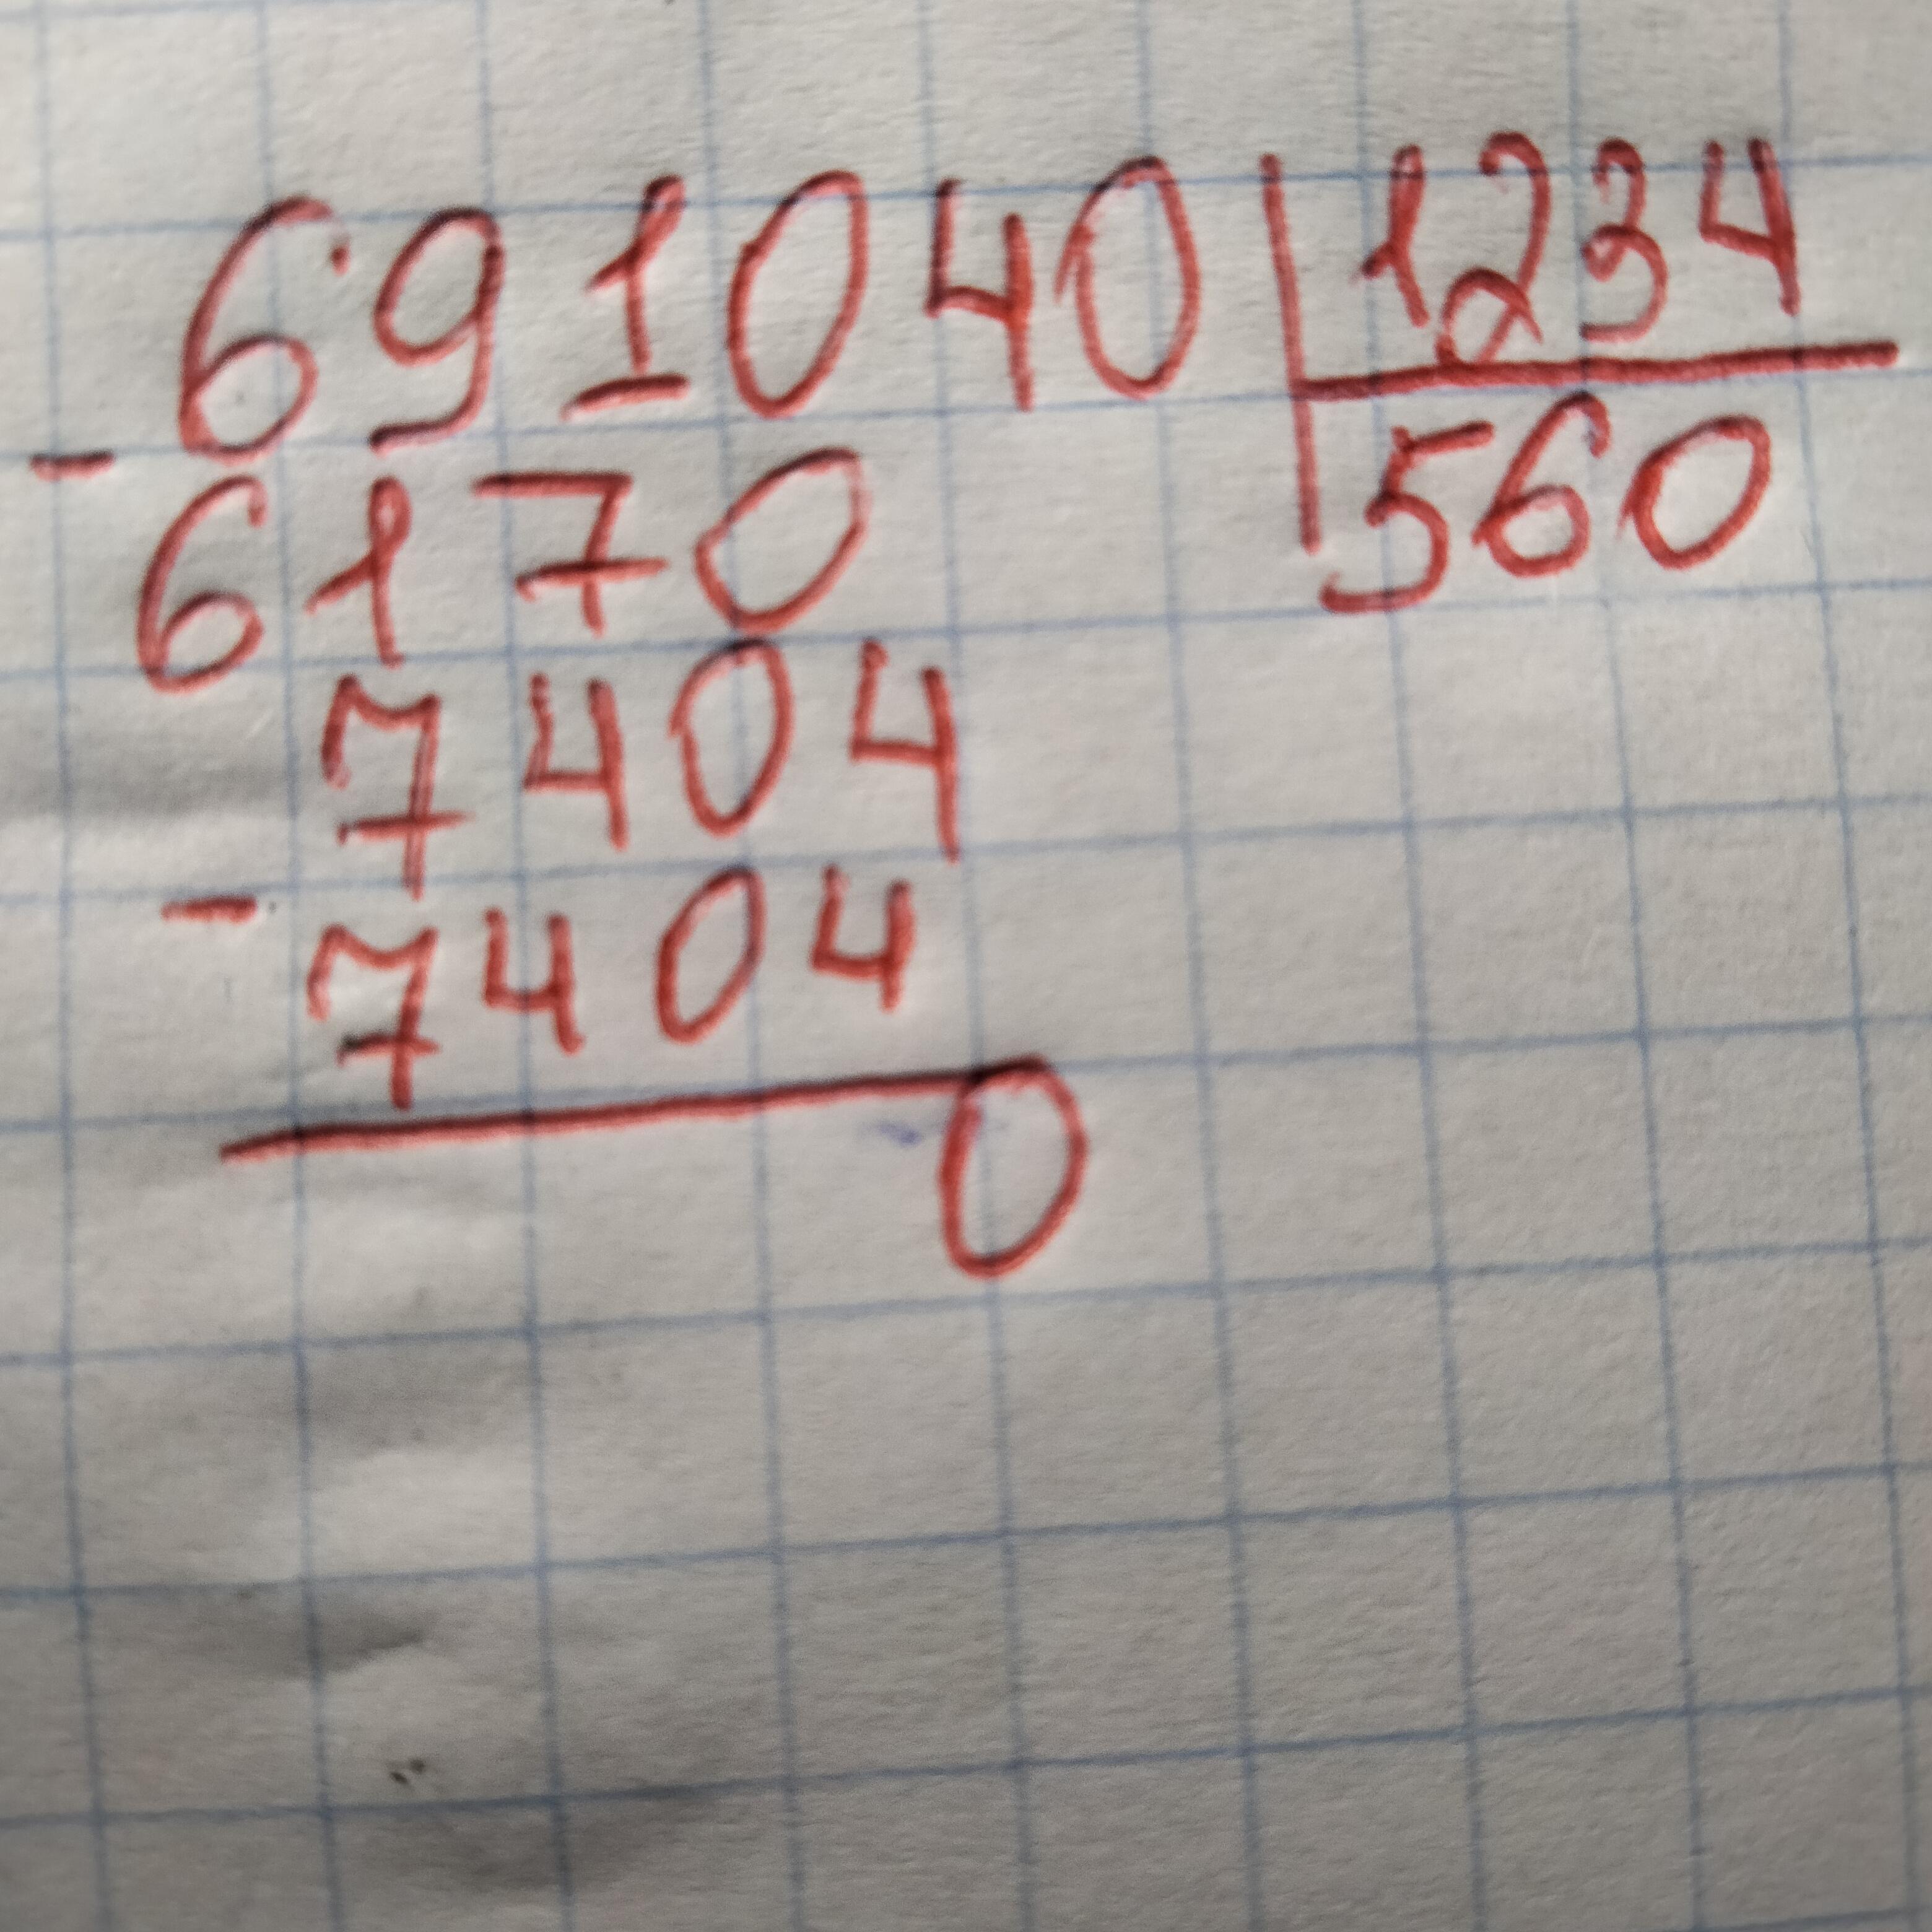 691040 | 1234
- 6170 560
7404
- 7404
0